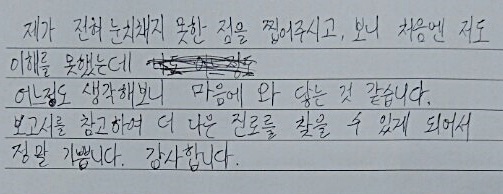 제가 전혀 눈치채지 못한 점을 찝어주시고, 보니 처음엔 저도
이해를 못했는데
어느정도 생각해보니 마음에 와 닿는 것 같습니다.
보고서를 참고하여 더 나은 진로를 찾을 수 있게 되어서
정말 기쁩니다. 감사합니다.